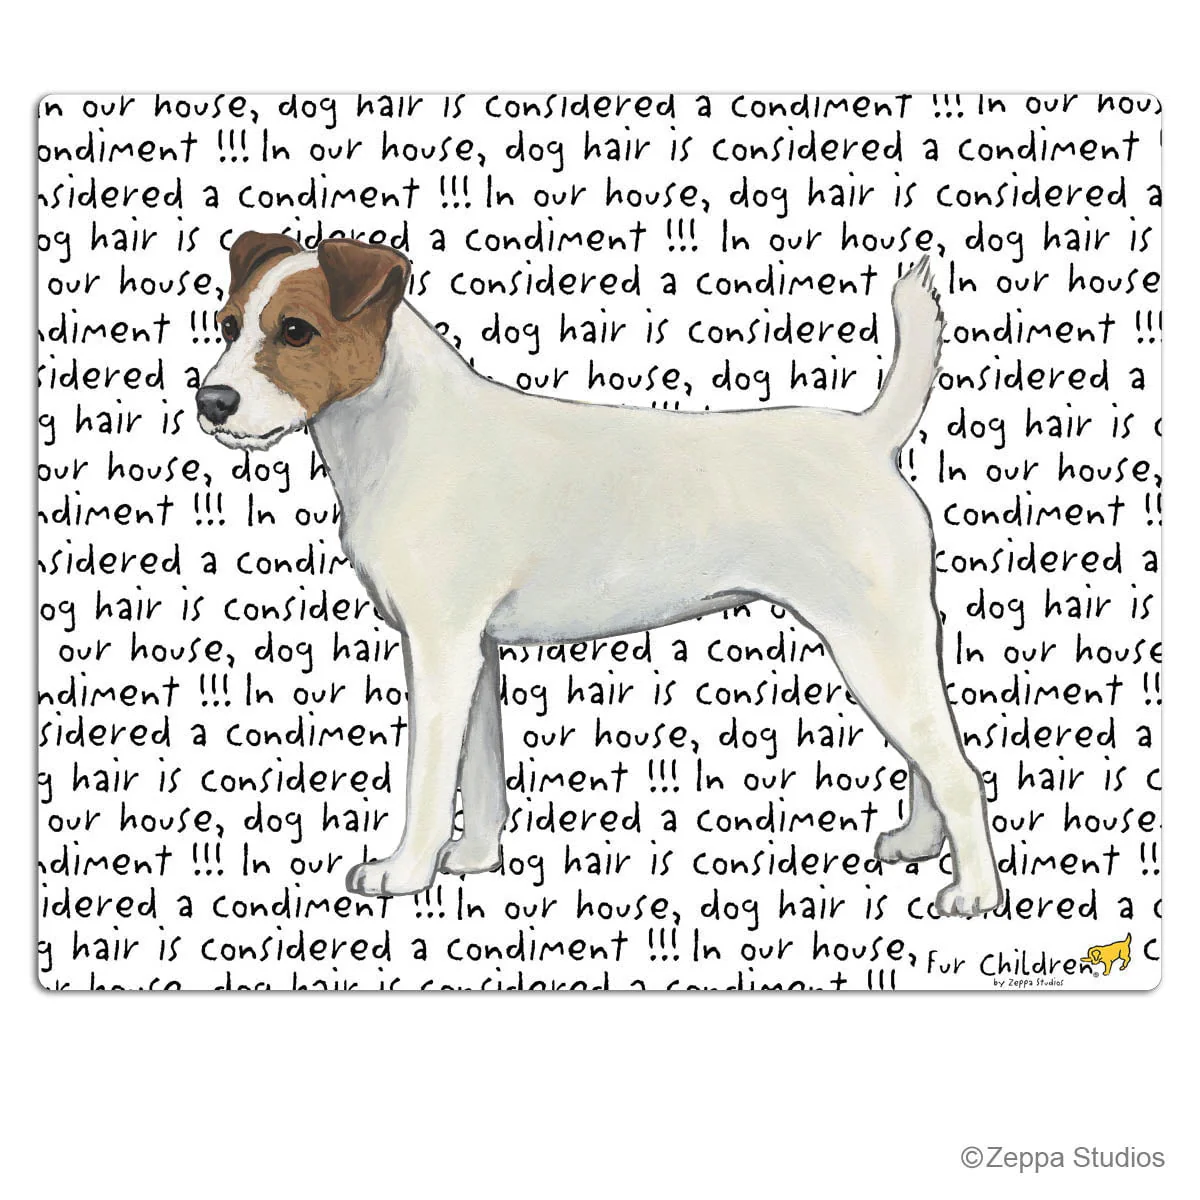 In our house, dog hair is considered a condiment !!! In our hous
ondiment !!! In our house, dog hair is considered a condiment !
nsidered a condiment !!! In our house, dog hair is considered a
og hair is considered a condiment !!! In our house, dog hair is
our house, is considered a condiment !!! In our house
ndiment !!! e, dog hair is considered condiment !!!
sidered a our house, dog hair i onsidered a
g hair is , dog hair is c
our house, dog h ! In our house,
ndiment !!! In our condiment !!
nsidered a condim considered a
og hair is consider in o , dog hair is
our house, dog hair nsidered a condim In our house
ndiment !!! In our ho dog hair is consider condiment !!
sidered a condiment our house, dog hair i nsidered a
g hair is considered ndiment !!! In our house g hair is c
our house, dog hair nsidered a condiment ! our house
ndiment !!! In our h dog hair is considered a c diment !!
idered a condiment !!! In our house, dog hair is co idered a c
g hair is considered a condiment !!! In our house, c
Fur Children®
by Zeppa Studios
ur house, dog hair is considered a condiment !!!
©Zeppa Studios